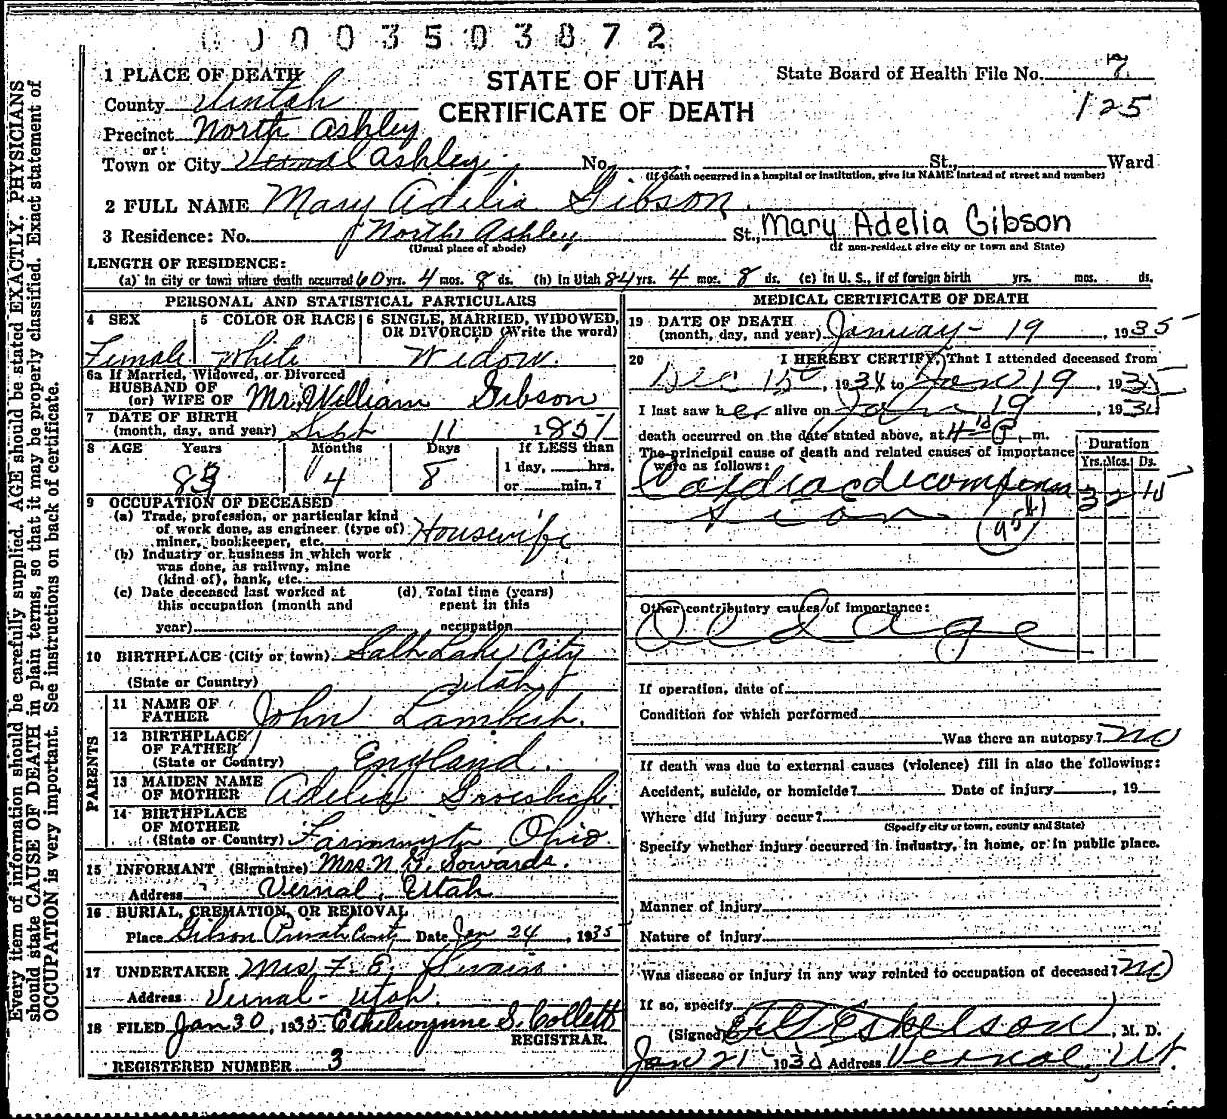 00003503872
1 PLACE OF DEATH
County Uintah
Precinct North Ashley
or
Town or City Vernal Ashley No. St., Ward
(If death occurred in a hospital or institution, give its NAME instead of street and number)
STATE OF UTAH
CERTIFICATE OF DEATH
State Board of Health File No. 7
125
2 FULL NAME Mary Adelia Gibson.
3 Residence: No. North Ashley St., Mary Adelia Gibson
(Usual place of abode) (If non-resident give city or town and State)
LENGTH OF RESIDENCE:
(a) In city or town where death occurred 60 yrs. 4 mos. 8 ds. (b) In Utah 84 yrs. 4 mos. 8 ds. (c) In U. S., if of foreign birth yrs. mos. ds.
PERSONAL AND STATISTICAL PARTICULARS
4 SEX Female
5 COLOR OR RACE White
6 SINGLE, MARRIED, WIDOWED, OR DIVORCED (Write the word) Widow.
6a If Married, Widowed, or Divorced
HUSBAND OF
(or) WIFE OF Mr. William Gibson
7 DATE OF BIRTH
(month, day, and year) Sept 11 1851
8 AGE Years Months Days If LESS than
83 4 8 1 day, hrs.
or min.?
9 OCCUPATION OF DECEASED
(a) Trade, profession, or particular kind
of work done, as engineer (type of)
miner, bookkeeper, etc. Housewife
(b) Industry or business in which work
was done, as railway, mine
(kind of), bank, etc.
(c) Date deceased last worked at
this occupation (month and
year)
(d) Total time (years)
spent in this
occupation
10 BIRTHPLACE (City or town) Salt Lake City
(State or Country) Utah
PARENTS
11 NAME OF
FATHER John Lambert.
12 BIRTHPLACE
OF FATHER
(State or Country) England.
13 MAIDEN NAME
OF MOTHER Adelia Groesbeck.
14 BIRTHPLACE
OF MOTHER
(State or Country) Farmington Ohio
15 INFORMANT (Signature) Mrs. N. G. Sowards.
Address Vernal, Utah
16 BURIAL, CREMATION, OR REMOVAL
Place Gibson Private Date Jan 24, 1935
17 UNDERTAKER Mrs F. E. Swain
Address Vernal - Utah.
18 FILED Jan 30, 1935 Ethelwynne S. Collett
REGISTRAR.
REGISTERED NUMBER 3
MEDICAL CERTIFICATE OF DEATH
19 DATE OF DEATH
(month, day, and year) January - 19, 1935
20 I HEREBY CERTIFY, That I attended deceased from
Dec 15, 1934 to Jan 19, 1935
I last saw her alive on Jan 19, 193
death occurred on the date stated above, at 4 P. m.
The principal cause of death and related causes of importance
were as follows:
Duration
Yrs. Mos. Ds.
Cardiac decompensa
sion
3 2 10
Other contributory causes of importance:
Old age
If operation, date of
Condition for which performed
Was there an autopsy? no
If death was due to external causes (violence) fill in also the following:
Accident, suicide, or homicide? Date of injury, 19
Where did injury occur?
(Specify city or town, county and State)
Specify whether injury occurred in industry, in home, or in public place.
Manner of injury
Nature of injury
Was disease or injury in any way related to occupation of deceased? no
If so, specify
(Signed) Eskelson, M. D.
Jan 21 193 Address Vernal, Ut.
Every item of information should be carefully supplied. AGE should be stated EXACTLY. PHYSICIANS
should state CAUSE OF DEATH in plain terms, so that it may be properly classified. Exact statement of
OCCUPATION is very important. See instructions on back of certificate.